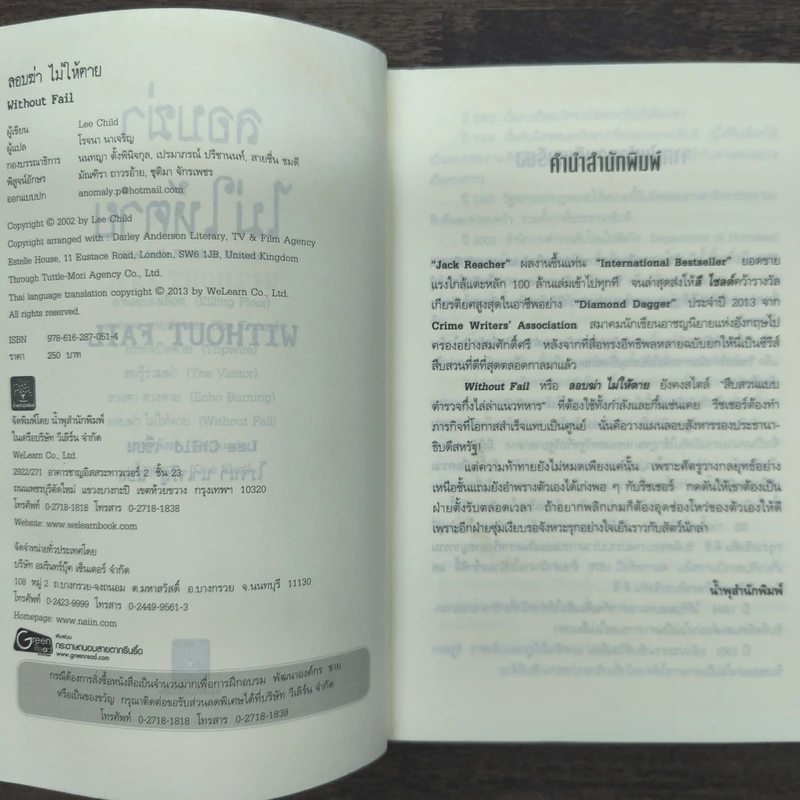 ลอบฆ่า ไม่ให้ตาย
Without Fail
ผู้เขียน Lee Child
ผู้แปล โรจนา นาเจริญ
กองบรรณาธิการ นนทญา ตั้งพินิจกุล, เปรมาภรณ์ ปรีชานนท์, สายชื่น ชมดี
พิสูจน์อักษร มัณฑิรา ถาวรอ้าย, ชุติมา จักรเพชร
ออกแบบปก anomaly.p@hotmail.com
Copyright © 2002 by Lee Child
Copyright arranged with : Darley Anderson Literary, TV & Film Agency
Estelle House, 11 Eustace Road, London, SW6 1JB, United Kingdom
Through Tuttle-Mori Agency Co., Ltd.
Thai language translation copyright © 2013 by WeLearn Co., Ltd.
All rights reserved.
ISBN 978-616-287-051-4
ราคา 250 บาท
จัดพิมพ์โดย น้ำพุสำนักพิมพ์
ในเครือบริษัท วีเลิร์น จำกัด
WeLearn Co., Ltd.
2922/271 อาคารชาญอิสสระทาวเวอร์ 2 ชั้น 23
ถนนเพชรบุรีตัดใหม่ แขวงบางกะปิ เขตห้วยขวาง กรุงเทพฯ 10320
โทรศัพท์ 0-2718-1818 โทรสาร 0-2718-1838
Website: www.welearnbook.com
จัดจำหน่ายทั่วประเทศโดย
บริษัท อมรินทร์บุ๊ค เซ็นเตอร์ จำกัด
108 หมู่ 2 ถ.บางกรวย-จงถนอม ต.มหาสวัสดิ์ อ.บางกรวย จ.นนทบุรี 11130
โทรศัพท์ 0-2423-9999 โทรสาร 0-2449-9561-3
Homepage: www.naiin.com
Green Read
พิมพ์บน
กระดาษถนอมสายตากรีนรี้ด
www.greenread.com
กรณีต้องการสั่งซื้อหนังสือเป็นจำนวนมากเพื่อการฝึกอบรม พัฒนาองค์กร ขาย
หรือเป็นของขวัญ กรุณาติดต่อขอรับส่วนลดพิเศษได้ที่บริษัท วีเลิร์น จำกัด
โทรศัพท์ 0-2718-1818 โทรสาร 0-2718-1838
คำนำสำนักพิมพ์
"Jack Reacher" ผลงานชิ้นแท่น "International Bestseller" ยอดขาย
แรงใกล้แตะหลัก 100 ล้านเล่มเข้าไปทุกที จนล่าสุดส่งให้ลี ไชลด์คว้ารางวัล
เกียรติยศสูงสุดในอาชีพอย่าง "Diamond Dagger" ประจำปี 2013 จาก
Crime Writers' Association สมาคมนักเขียนอาชญนิยายแห่งอังกฤษไป
ครองอย่างสมศักดิ์ศรี หลังจากที่สื่อทรงอิทธิพลหลายฉบับยกให้นี่เป็นซีรีส์
สืบสวนที่ดีที่สุดตลอดกาลมาแล้ว
Without Fail หรือ ลอบฆ่า ไม่ให้ตาย ยังคงสไตล์ "สืบสวนแบบ
ตำรวจกึ่งไล่ล่าแนวทหาร" ที่ต้องใช้ทั้งกำลังและกึ๋นเช่นเคย รีชเชอร์ต้องทำ
ภารกิจที่โอกาสสำเร็จแทบเป็นศูนย์ นั่นคือวางแผนลอบสังหารรองประธานา-
ธิบดีสหรัฐ!
แต่ความท้าทายยังไม่หมดเพียงแค่นั้น เพราะศัตรูวางกลยุทธ์อย่าง
เหนือชั้นแถมยังอำพรางตัวเองได้เก่งพอ ๆ กับรีชเชอร์ กดดันให้เขาต้องเป็น
ฝ่ายตั้งรับตลอดเวลา ถ้าอยากพลิกเกมก็ต้องอุดช่องโหว่ของตัวเองให้ดี
เพราะอีกฝ่ายซุ่มเงียบรอจังหวะรุกอย่างใจเย็นราวกับสัตว์นักล่า
น้ำพุสำนักพิมพ์